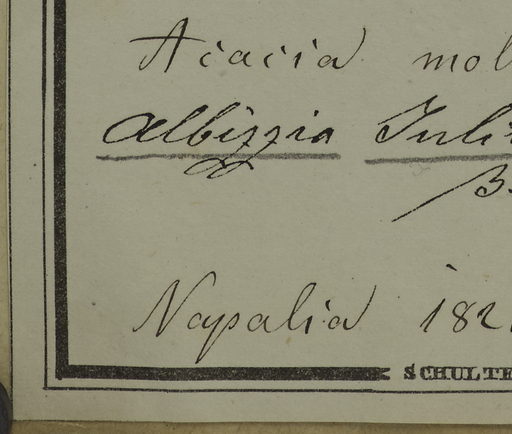 Acacia mol
Albizzia Juli
B.
Napalia 182
SCHULTE